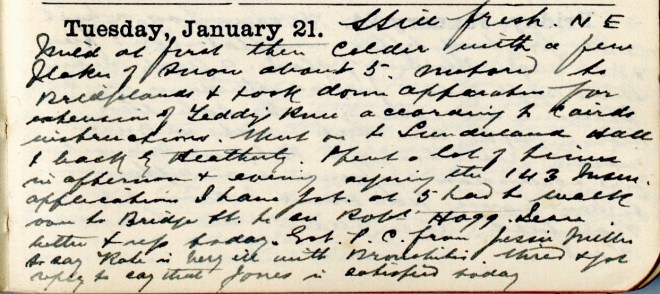 Tuesday, January 21. Still fresh. N E
Mild at first then colder with a few
flakes of snow about 5. Motored to
Bridgelands & took down apparatus for
extension of Teddy's knee according to Cairds
instructions. Went on to Sunderland Hall
& back by Heatherly. Spent a lot of time
in afternoon & evening signing the 143 Insur.
applications I have got. at 5 had to walk
over to Bridge St. to see Robt Hogg. Jean
better & up today. Got P.C. from Jessie
to say Kate is very ill with Bronchitis. Wired & got
reply to say that Jones is satisfied today